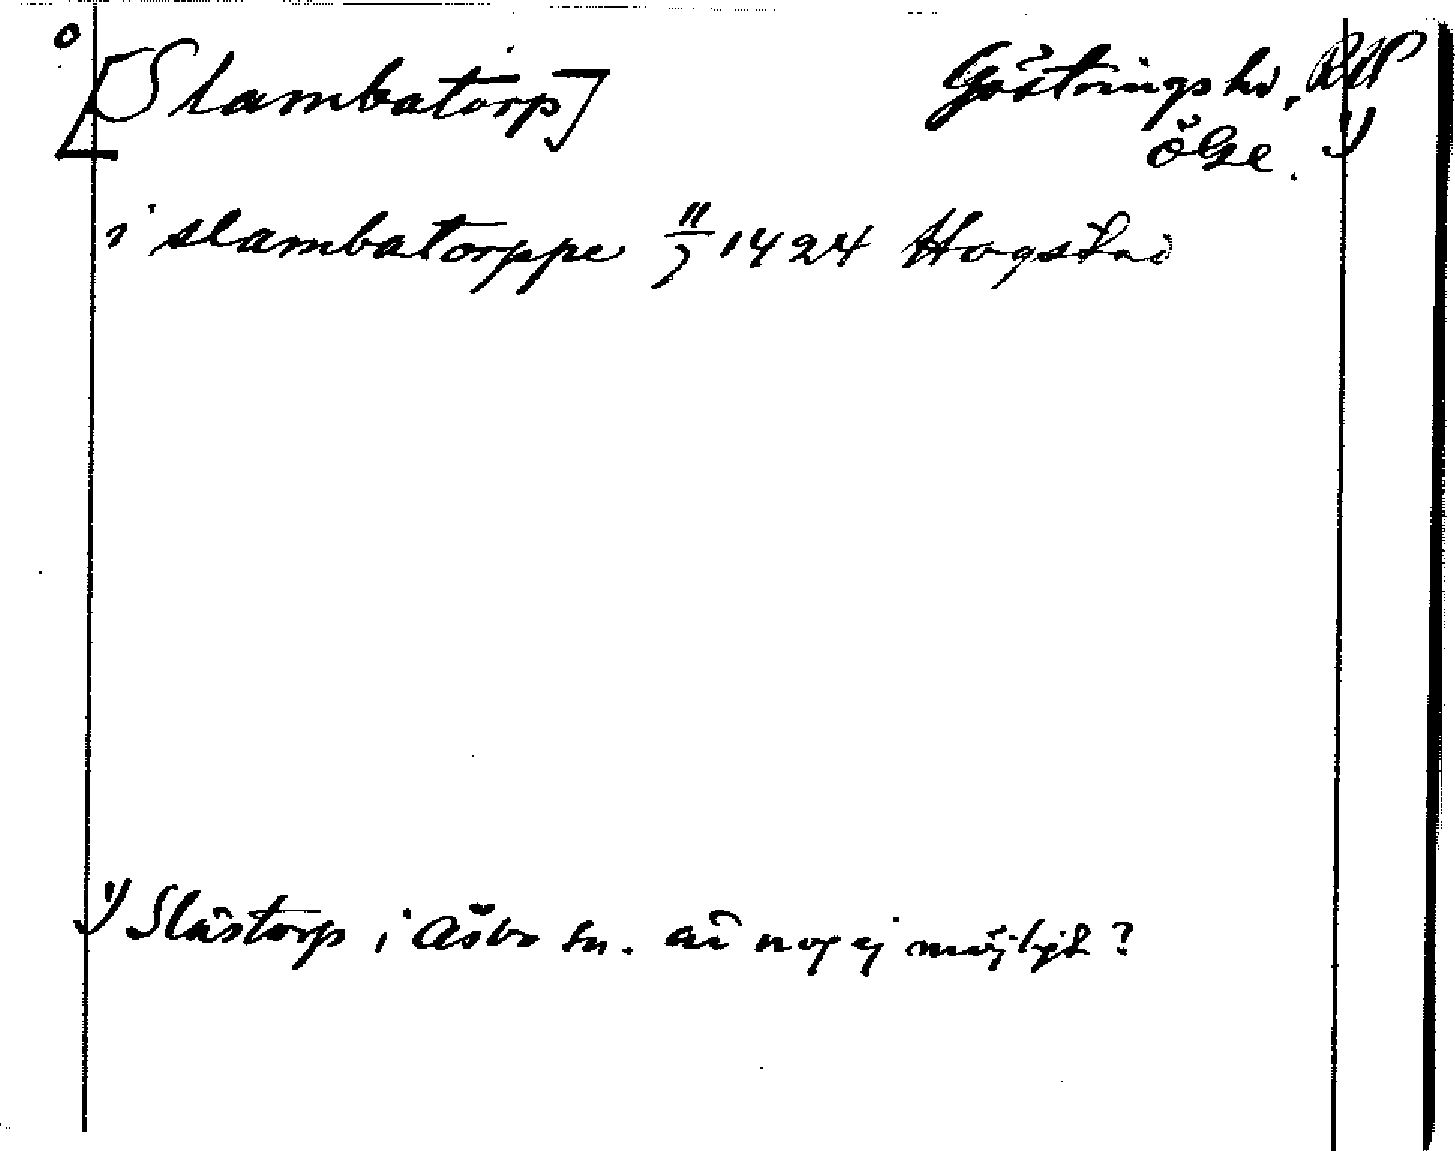 [Slambatorp] Göstrings hd, RAP
ÖGe. 1)
i slambatorppe 11/7 1424 Hogstad
1) Slästorp i Åsbo sn. är nog ej möjligt?